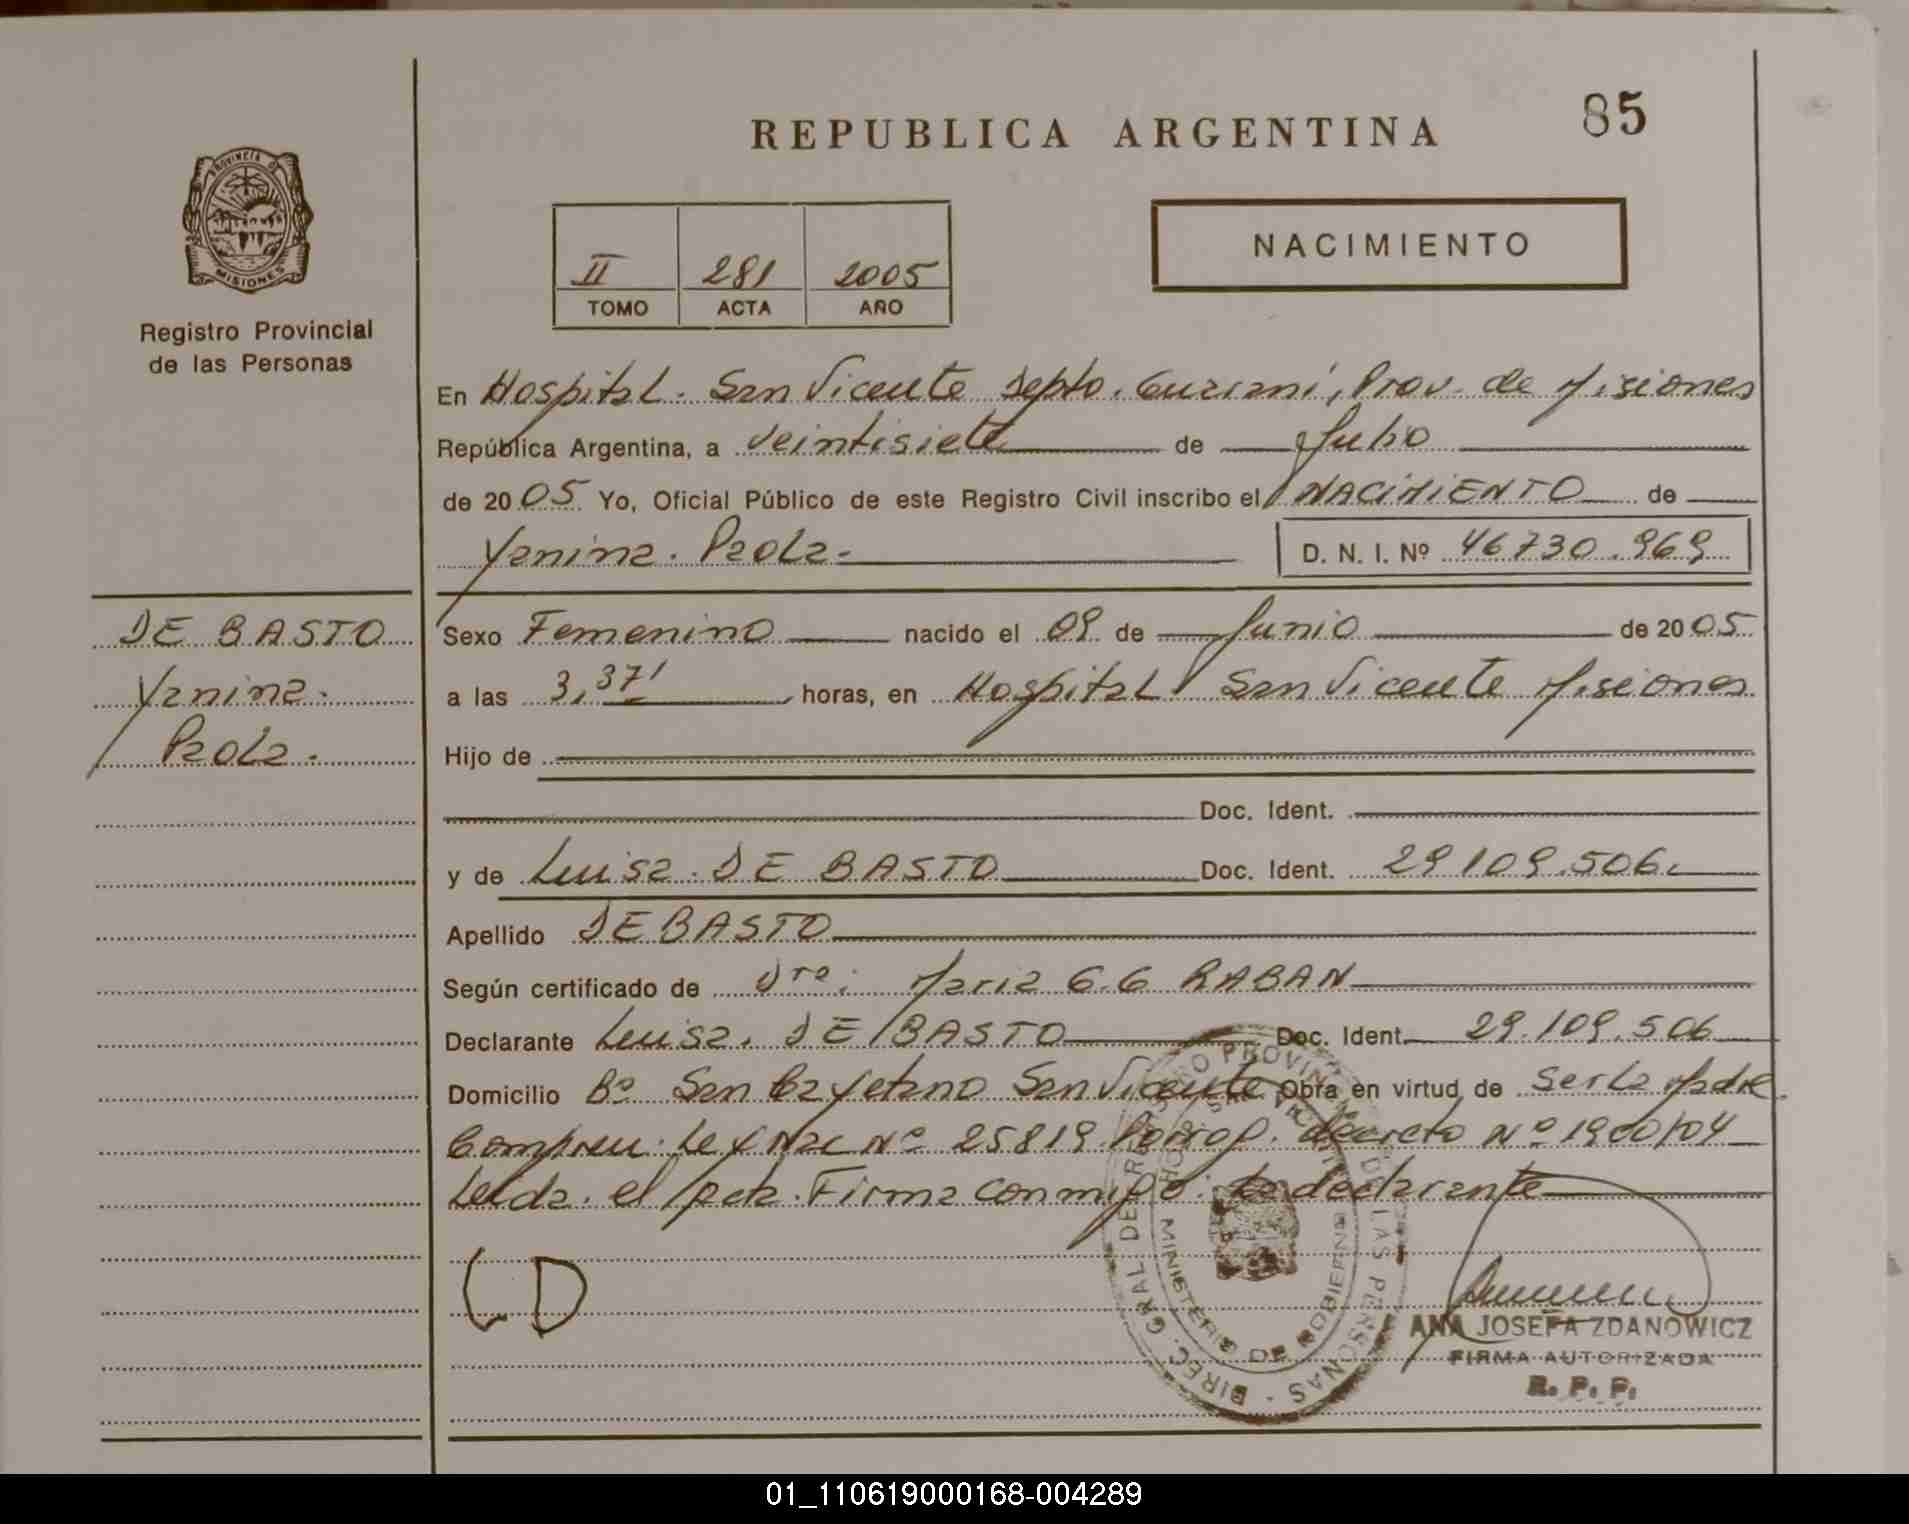 85
REPUBLICA ARGENTINA
PROVINCIA DE
MISIONES
Registro Provincial
de las Personas
II 281 2005
TOMO ACTA AÑO
NACIMIENTO
En Hospital. San Vicente Depto. Guaraní, Prov. de Misiones
República Argentina, a veintisiete de Julio
de 2005 Yo, Oficial Público de este Registro Civil inscribo el NACIMIENTO de
Yanina. Paola- D. N. I. Nº 46730.969
DE BASTO
Yanina.
Paola.
Sexo Femenino nacido el 09 de Junio de 2005
a las 3,37' horas, en Hospital San Vicente Misiones
Hijo de
Doc. Ident.
y de Luisa. DE BASTO Doc. Ident. 29109.506.
Apellido DE BASTO
Según certificado de Dra: Maria G.G RABAN
Declarante Luisa. DE BASTO Doc. Ident. 29.109.506
Domicilio Bº San Cayetano San Vicente Obra en virtud de Ser La Madre
Compren. Ley Nac Nº 25819 Prorrog. decreto Nº 1900/04
Leida. el Acta. Firma conmigo: La declarante
LD
DIREC. GRAL DE REGISTRO PROVINCIAL DE LAS PERSONAS
MINISTERIO DE GOBIERNO
ANA JOSEFA ZDANOWICZ
FIRMA AUTORIZADA
R. P. P.
01_110619000168-004289